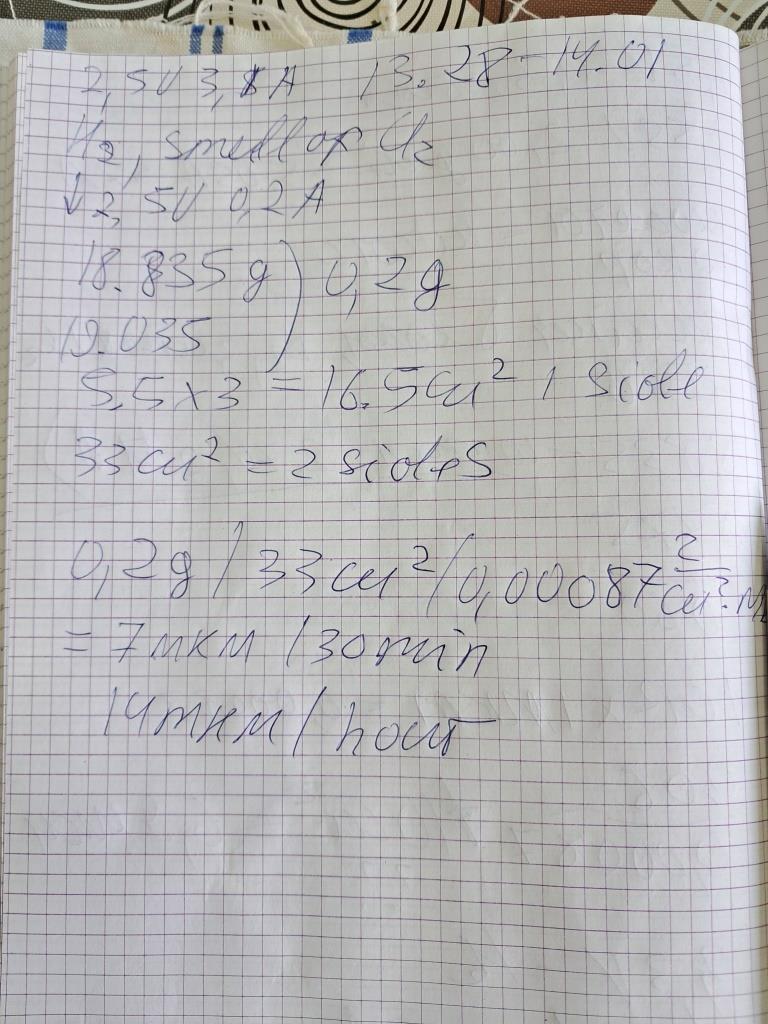 2,5V 3,8A 13.28-14.01
H2, smell of Cl2
↓2,5V 0,2A
18.835g ) 0,2g
19.035
5,5x3 = 16.5cm² 1 Side
33cm² = 2 sides
0,2g / 33cm² / 0,00087 г/см².м
= 7мкм /30min
14мкм / hour